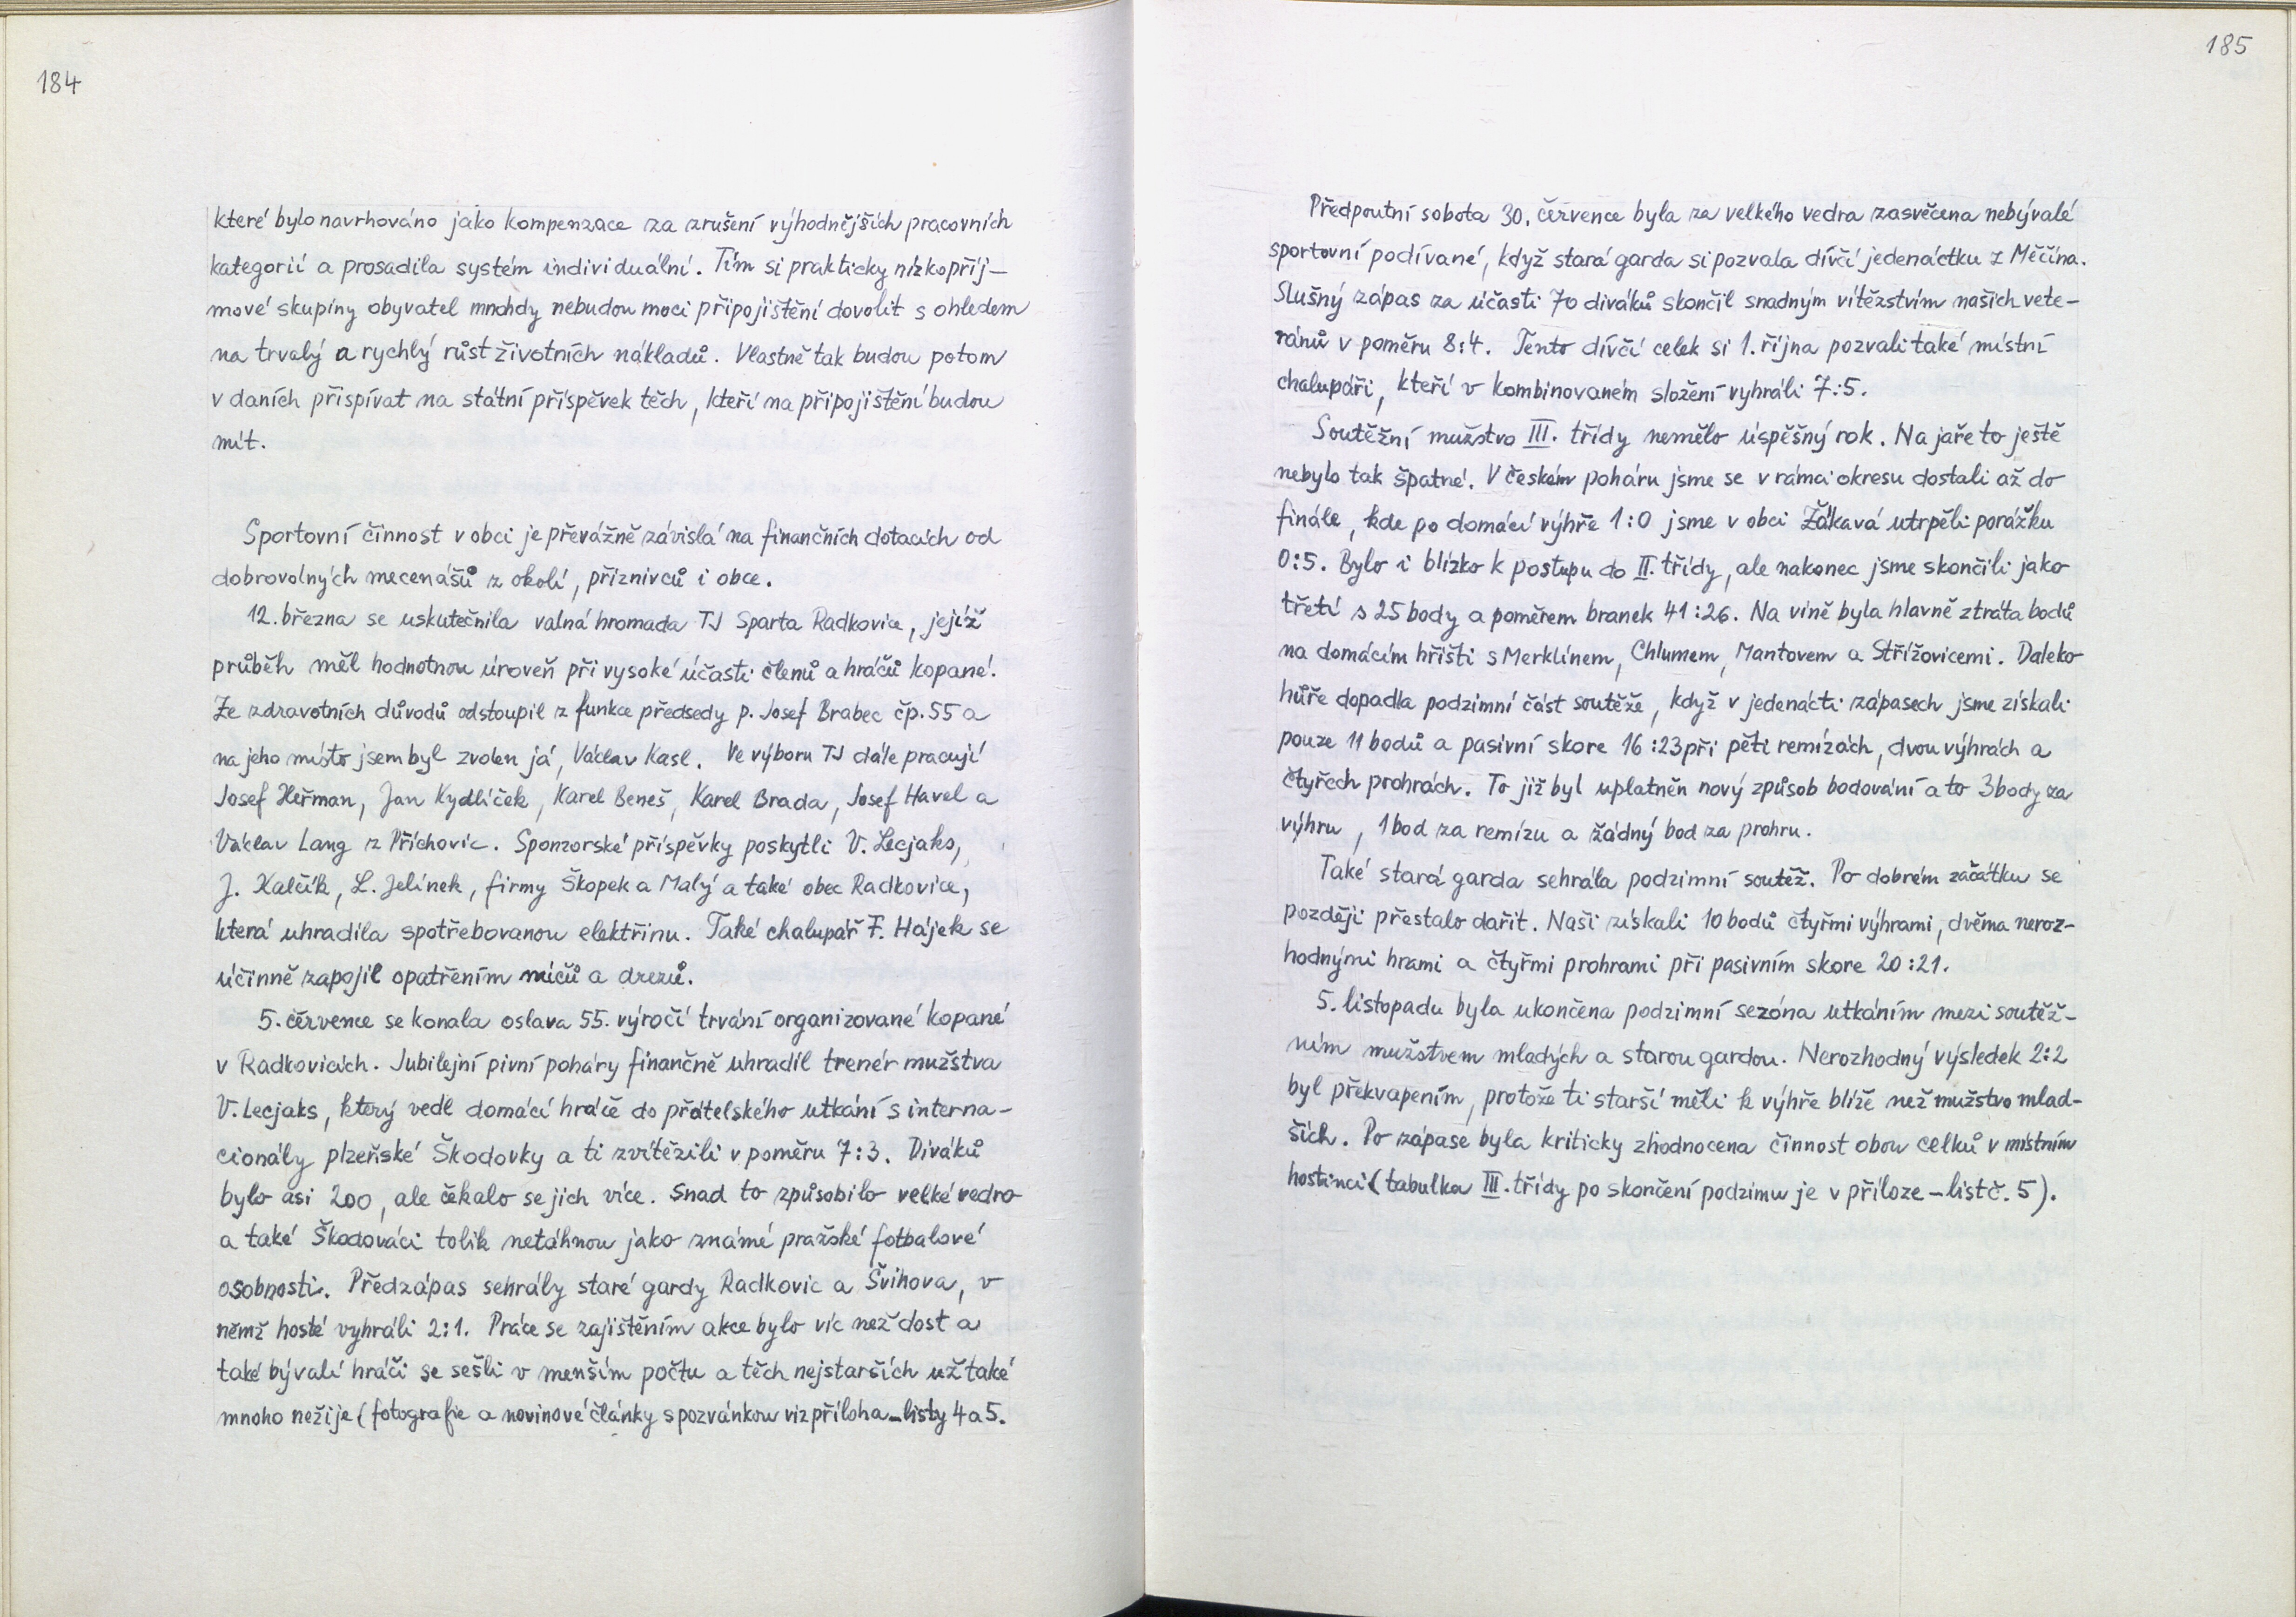 184
které bylo navrhováno jako kompenzace za zrušení výhodnějších pracovních
kategorií a prosadila systém individuální. Tím si prakticky nízkopříj-
mové skupiny obyvatel mnohdy nebudou moci připojištění dovolit s ohledem
na trvalý a rychlý růst životních nákladů. Vlastně tak budou potom
v daních přispívat na státní příspěvek těch, kteří na připojištění budou
mít.
Sportovní činnost v obci je převážně závislá na finančních dotacích od
dobrovolných mecenášů z okolí, příznivců i obce.
12. března se uskutečnila valná hromada TJ Sparta Radkovice, jejíž
průběh měl hodnotnou úroveň při vysoké účasti členů a hráčů kopané.
Ze zdravotních důvodů odstoupil z funkce předsedy p. Josef Brabec čp. 55 a
na jeho místo jsem byl zvolen já, Václav Kasl. Ve výboru TJ dále pracují
Josef Heřman, Jan Kydlíček, Karel Beneš, Karel Brada, Josef Havel a
Václav Lang z Příchovic. Sponzorské příspěvky poskytli V. Lecjaks,
J. Kalčík, L. Jelínek, firmy Škopek a Malý a také obec Radkovice,
která uhradila spotřebovanou elektřinu. Také chalupář F. Hájek se
účinně zapojil opatřením míčů a dresů.
5. července se konala oslava 55. výročí trvání organizované kopané
v Radkovicích. Jubilejní pivní poháry finančně uhradil trenér mužstva
V. Lecjaks, který vedl domácí hráče do přátelského utkání s interna-
cionály plzeňské Škodovky a ti zvítězili v poměru 7:3. Diváků
bylo asi 200, ale čekalo se jich více. Snad to způsobilo velké vedro
a také Škodováci tolik netáhnou jako známé pražské fotbalové
osobnosti. Předzápas sehrály staré gardy Radkovic a Švihova, v
němž hosté vyhráli 2:1. Práce se zajištěním akce bylo víc než dost a
také bývalí hráči se sešli v menším počtu a těch nejstarších už také
mnoho nežije (fotografie a novinové články s pozvánkou viz příloha - listy 4 a 5.
185
Předpoutní sobota 30. července byla za velkého vedra zasvěcena nebývalé
sportovní podívané, když stará garda si pozvala dívčí jedenáctku z Měčína.
Slušný zápas za účasti 70 diváků skončil snadným vítězstvím našich vete-
ránů v poměru 8:4. Tento dívčí celek si 1. října pozvali také místní
chalupáři, kteří v kombinovaném složení vyhráli 7:5.
Soutěžní mužstvo III. třídy nemělo úspěšný rok. Na jaře to ještě
nebylo tak špatné. V českém poháru jsme se v rámci okresu dostali až do
finále, kde po domácí výhře 1:0 jsme v obci Žákavá utrpěli porážku
0:5. Bylo i blízko k postupu do II. třídy, ale nakonec jsme skončili jako
třetí s 25 body a poměrem branek 41:26. Na vině byla hlavně ztráta bodů
na domácím hřišti s Merklínem, Chlumem, Mantovem a Střížovicemi. Daleko
hůře dopadla podzimní část soutěže, když v jedenácti zápasech jsme získali
pouze 11 bodů a pasivní skore 16:23 při pěti remízách, dvou výhrách a
čtyřech prohrách. To již byl uplatněn nový způsob bodování a to 3 body za
výhru, 1 bod za remízu a žádný bod za prohru.
Také stará garda sehrála podzimní soutěž. Po dobrém začátku se
později přestalo dařit. Naši získali 10 bodů čtyřmi výhrami, dvěma neroz-
hodnými hrami a čtyřmi prohrami při pasivním skore 20:21.
5. listopadu byla ukončena podzimní sezóna utkáním mezi soutěž-
ním mužstvem mladých a starou gardou. Nerozhodný výsledek 2:2
byl překvapením, protože ti starší měli k výhře blíže než mužstvo mlad-
ších. Po zápase byla kriticky zhodnocena činnost obou celků v místním
hostinci (tabulka III. třídy po skončení podzimu je v příloze - list č. 5).